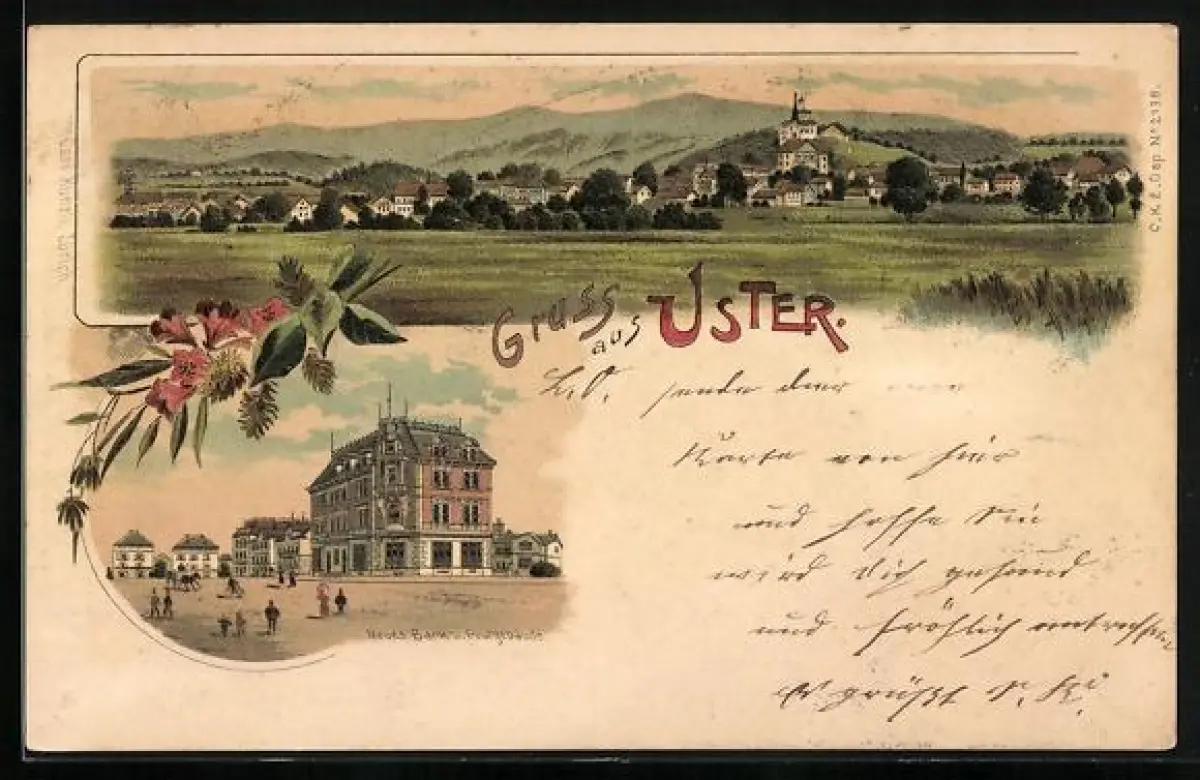 Gruss aus USTER.
C.K.Z. Dep. No. 2338.
L. O. sende dir
Karte von hier
und hoffe Sie
wird dich gesund
und fröhlich antreffen
Es grüßt
Neues Bank u. Postgebäude